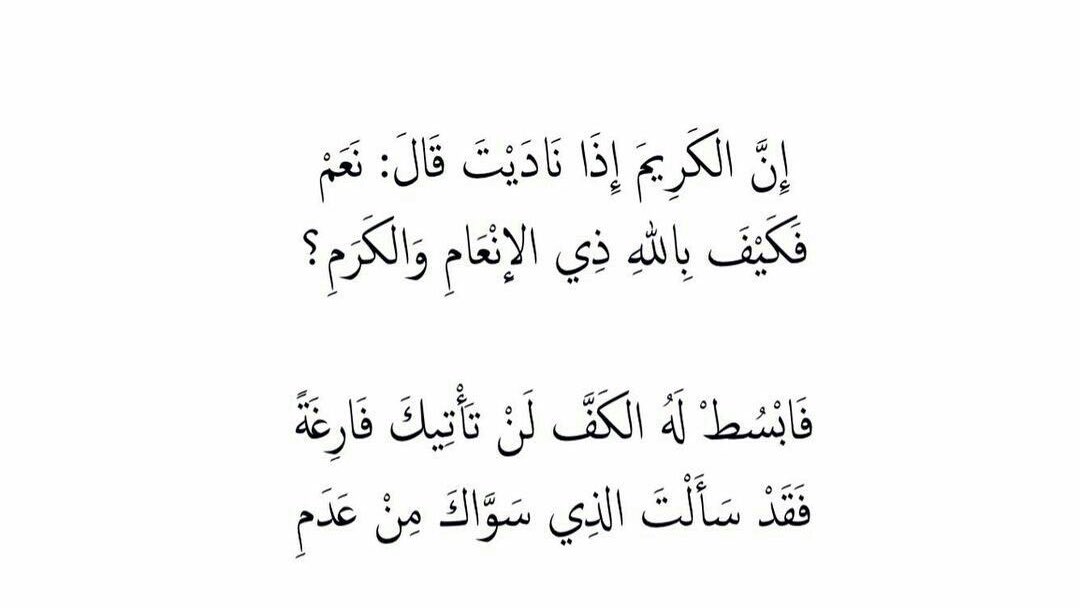 إِنَّ الكَرِيمَ إِذَا نَادَيْتَ قَالَ: نَعَمْ
فَكَيْفَ بِاللهِ ذِي الإِنْعَامِ وَالكَرَمِ؟
فَابْسُطْ لَهُ الكَفَّ لَنْ تَأْتِيكَ فَارِغَةً
فَقَدْ سَأَلْتَ الذِي سَوَّاكَ مِنْ عَدَمِ